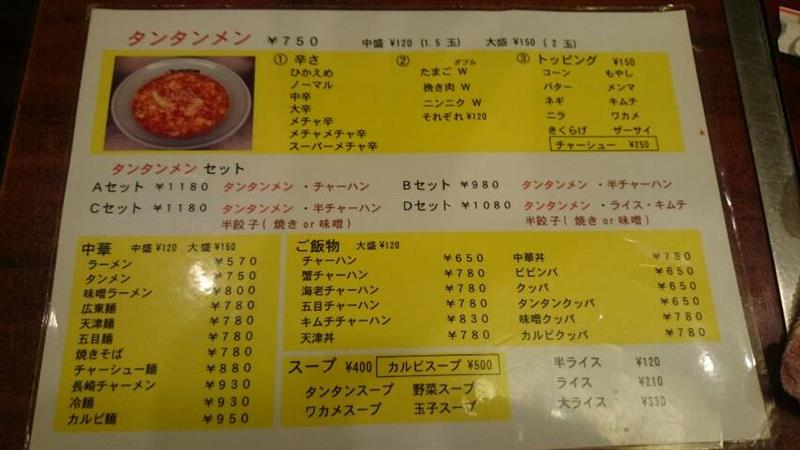 タンタンメン ￥750 中盛 ¥120 (1.5 玉) 大盛 ¥150 (2 玉)
① 辛さ
ひかえめ
ノーマル
中辛
大辛
メチャ辛
メチャメチャ辛
スーパーメチャ辛
② ダブル
たまご W
挽き肉 W
ニンニク W
それぞれ ¥120
③ トッピング ¥150
コーン もやし
バター メンマ
ネギ キムチ
ニラ ワカメ
きくらげ ザーサイ
チャーシュー ¥250
タンタンメン セット
Aセット ￥1180 タンタンメン ・チャーハン
Bセット ￥980 タンタンメン ・半チャーハン
Cセット ￥1180 タンタンメン ・半チャーハン
半餃子( 焼き or 味噌)
Dセット ￥1080 タンタンメン ・ライス・キムチ
半餃子( 焼き or 味噌)
中華 中盛 ¥120 大盛 ¥150
ラーメン ￥570
タンメン ￥750
味噌ラーメン ￥800
広東麺 ￥780
天津麺 ￥780
五目麺 ￥780
焼きそば ￥780
チャーシュー麺 ￥880
長崎チャーメン ￥930
冷麺 ￥930
カルビ麺 ￥950
ご飯物 大盛 ¥120
チャーハン ￥650
蟹チャーハン ￥780
海老チャーハン ￥780
五目チャーハン ￥780
キムチチャーハン ￥830
天津丼 ￥780
中華丼 ￥780
ビビンバ ￥650
クッパ ￥650
タンタンクッパ ￥650
味噌クッパ ￥780
カルビクッパ ￥780
スープ ¥400 カルビスープ ¥500
タンタンスープ 野菜スープ
ワカメスープ 玉子スープ
半ライス ¥120
ライス ¥210
大ライス ¥330